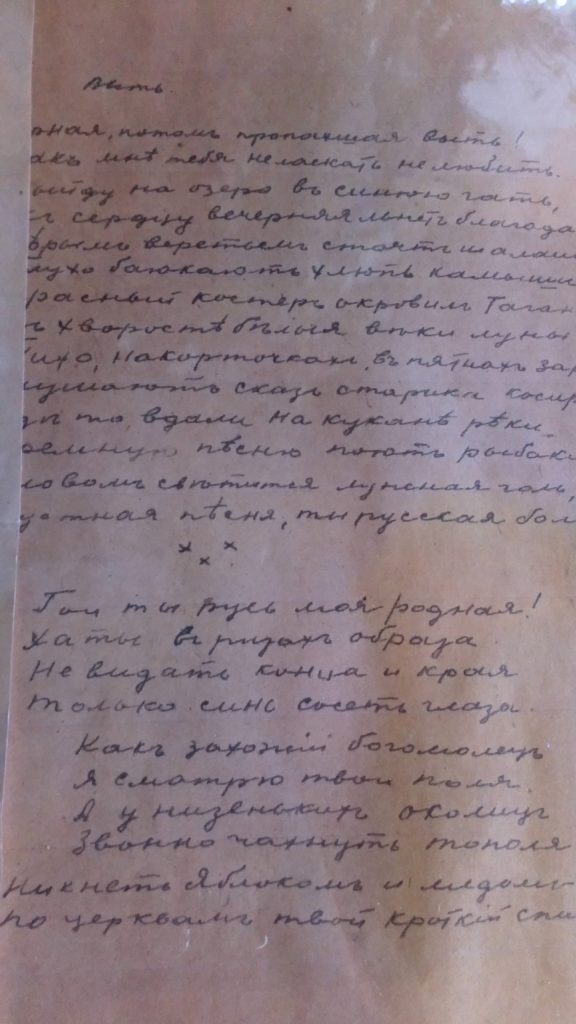 Выть.
рная, потомъ пропахшая выть!
акъ мнѣ тебя не ласкать не любить.
ыйду на озеро въ синюю гать,
ъ сердцу вечерняя льнетъ благода
ѣрымъ веретьемъ стоятъ шалаши
лухо баюкаютъ хлюпь камыши
расный костеръ окровилъ Таган
ъ хворостѣ бѣлыя вѣки луны
Тихо, на корточкахъ, въ пятнахъ зар
лушаютъ сказъ старика косар
дѣ то вдали на куканѣ рѣки
ремную пѣсню поютъ рыбаки
ловомъ свѣтится лунсная голь,
устная пѣсня, ты русская бол
× × ×
Гои ты Русь моя родная!
Хаты въ ризахъ образа
Не видать конца и края
Только синь сосетъ глаза.
Какъ захожій богомолецъ
Я смотрю твои поля.
А у низенькихъ околицъ
Звонно чахнутъ тополя
Пихнетъ яблокомъ и медомъ
По церквамъ твой кроткій спа